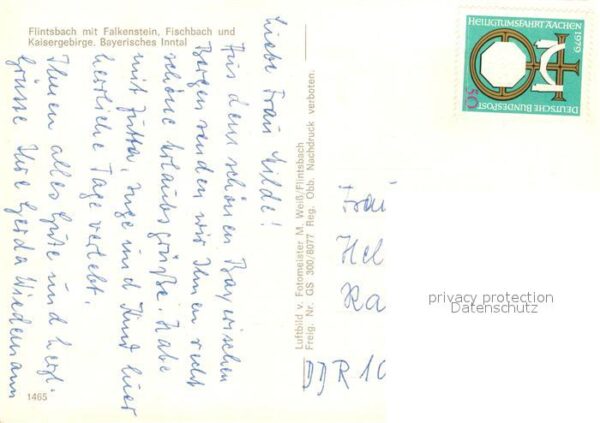 Flintsbach mit Falkenstein, Fischbach und
Kaisergebirge. Bayerisches Inntal
Liebe Frau Milde!
Aus dem schönen Bayerischen
Bergen senden wir Ihnen recht
schöne Urlaubsgrüße. Habe
mit Jutta, Inge und Kind hier
herrliche Tage verlebt.
Ihnen alles Gute und herzl.
Grüsse Ihre Gerda Wiedemann
1465
Luftbild v. Fotomeister M. Weiß/Flintsbach
Freig. Nr. GS 300/8077 Reg. Obb. Nachdruck verboten.
HEILIGTUMSFAHRT AACHEN
1979
DEUTSCHE BUNDESPOST
50
Frau
Hel
Ra
DDR 10
privacy protection
Datenschutz